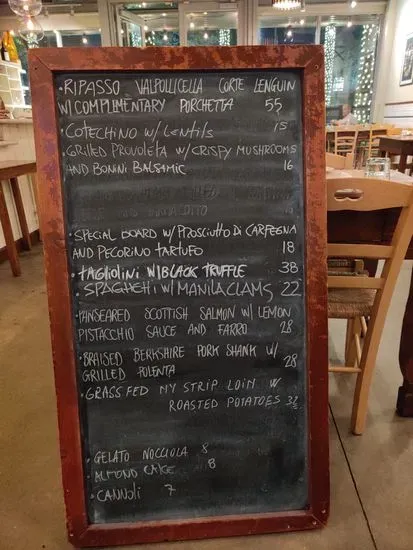 ·RIPASSO VALPOLLICELLA CORTE LENGUIN
W/COMPLIMENTARY PORCHETTA 55
·COTECHINO W/LENTILS 15
·GRILLED PROVOLETA W/CRISPY MUSHROOMS
AND BONINI BALSAMIC 16
·SPECIAL BOARD W/PROSCIUTTO DI CARPEGNA
AND PECORINO TARTUFO 18
·TAGLIOLINI W/BLACK TRUFFLE 38
·SPAGHETTI W/MANILA CLAMS 22
·PANSEARED SCOTTISH SALMON W/ LEMON
PISTACCHIO SAUCE AND FARRO 28
·BRAISED BERKSHIRE PORK SHANK W/
GRILLED POLENTA 28
·GRASS FED NY STRIP LOIN W
ROASTED POTATOES 32
·GELATO NOCCIOLA 8
·ALMOND CAKE 8
·CANNOLI 7